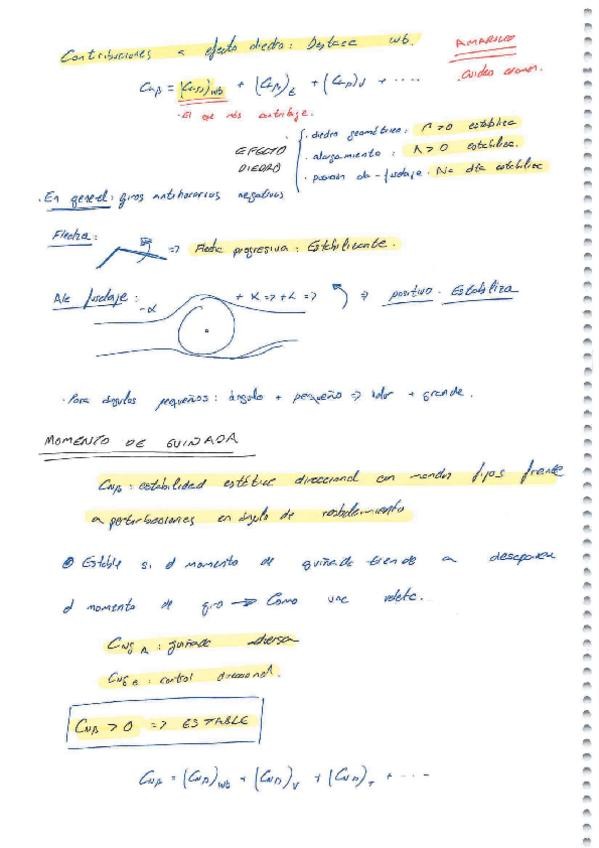 Contribuciones a efecto diedro: Destaca wb.
AMARILLO
Cnβ = (Cnβ)wb + (Cnβ)t + (Cnβ)v + ....
· El que más contribuye.
EFECTO DIEDRO
· diedro geométrico: Γ > 0 estabiliza
· alargamiento: Λ > 0 estabiliza.
· posición ala-fuselaje.
· En general: giros antihorarios negativos
Flecha: => Flecha progresiva: Estabilizante.
Ala fuselaje: -α + α => +L => => positivo. Estabiliza
· Para ángulos pequeños: ángulo + pequeño => valor + grande.
MOMENTO DE GUIÑADA
Cnβ: estabilidad estática direccional con mandos fijos frente
a perturbaciones en ángulo de resbalamiento
Estable si el momento de guiñada tiende a desaparecer
el momento de giro → Como una veleta.
CnδA: guiñada adversa
CnδR: control direccional.
Cnβ > 0 => ESTABLE
Cnβ = (Cnβ)wb + (Cnβ)v + (Cnβ)T + ....